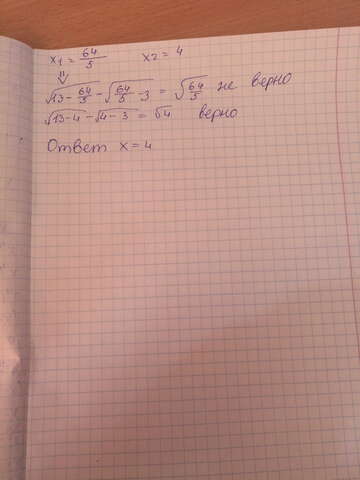 x1 = 64/5 x2 = 4
⇓
√13 - 64/5 - √64/5 - 3 = √64/5 не верно
√13 - 4 - √4 - 3 = √4 верно
Ответ x = 4